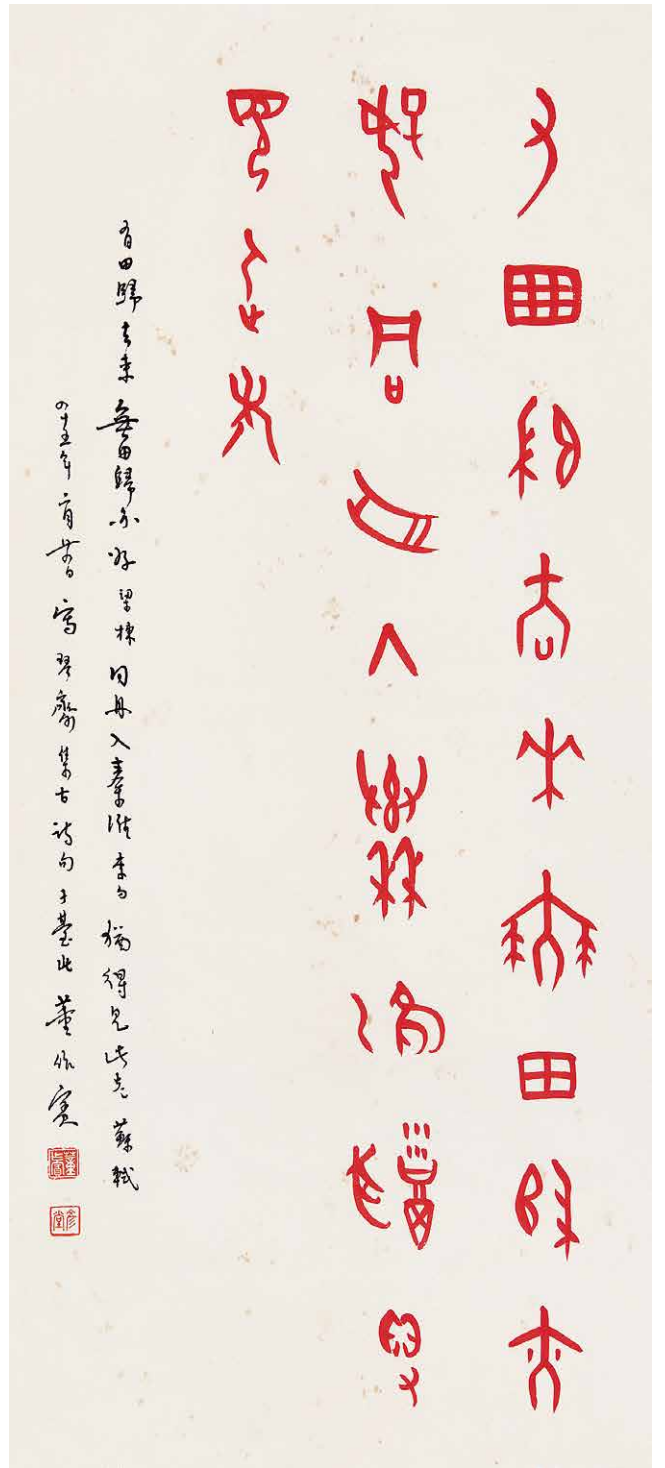 有田歸去來無田歸亦
好同舟入秦淮猶得
見此老
有田歸去來無田歸亦好 梁棟 同舟入秦淮 李白 猶得見此老 蘇軾
四十五年 寫琴齋集古詩句于臺北 董作賓
董作賓
彥堂